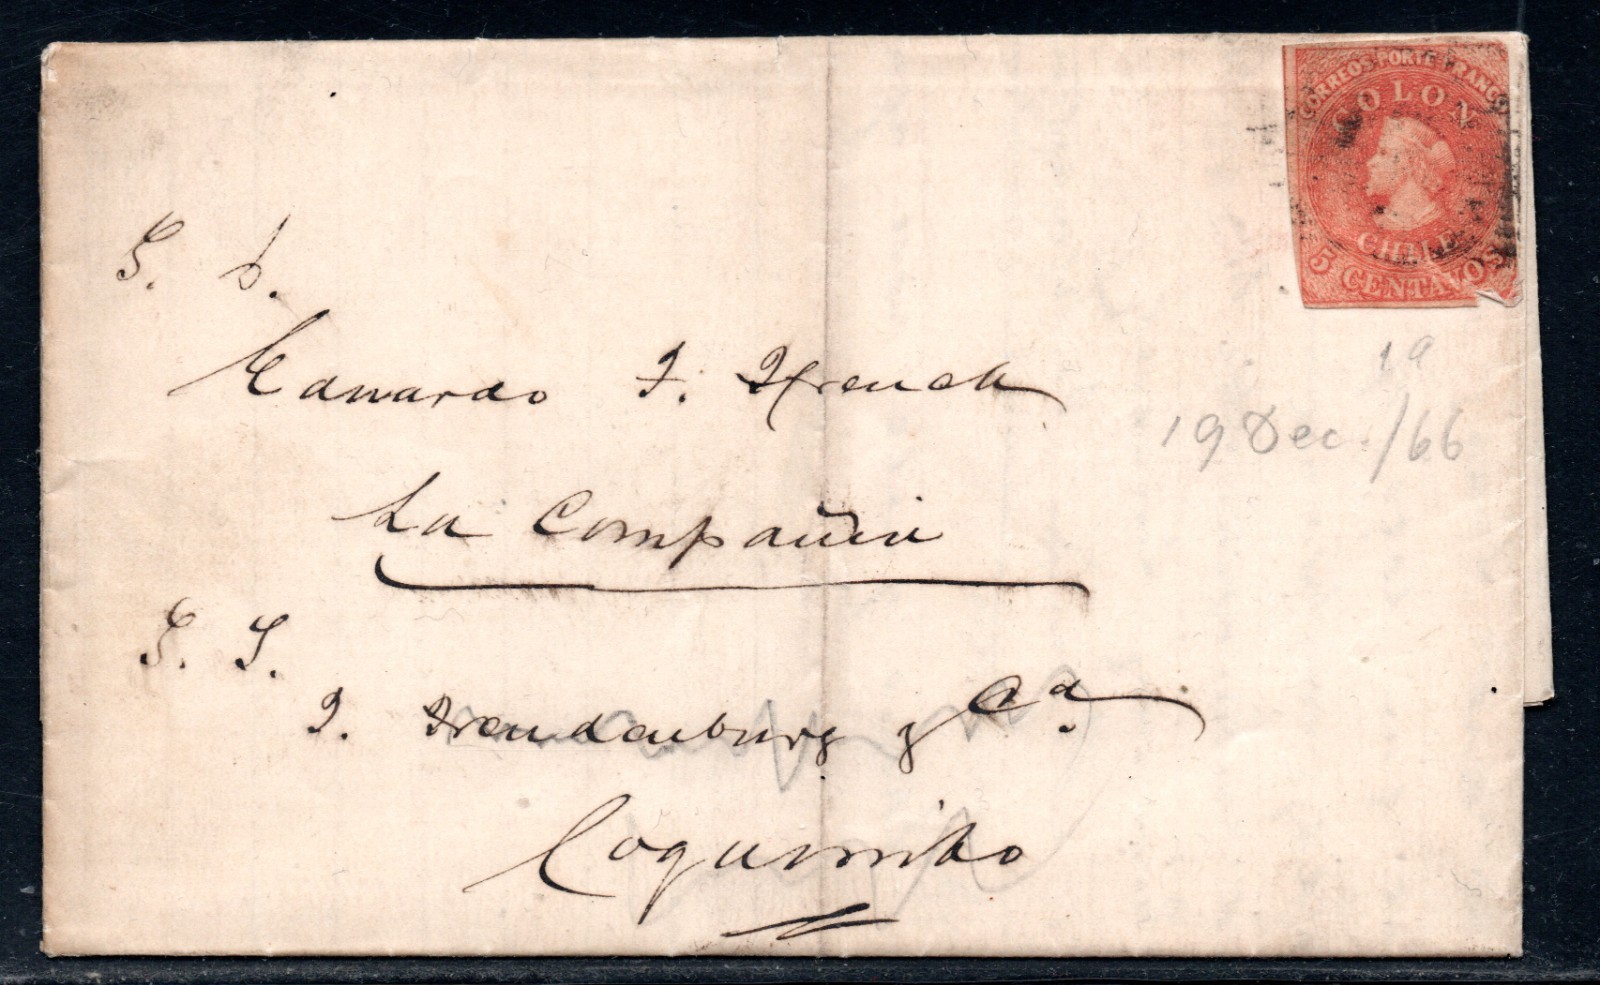 CORREOS PORTE FRANCO
COLON
CHILE
5 CENTAVOS
19
19 Dec./66
S. D.
Eduardo F. French
La Compañia
S. S.
F. Freudenburg y Ca.
Coquimbo